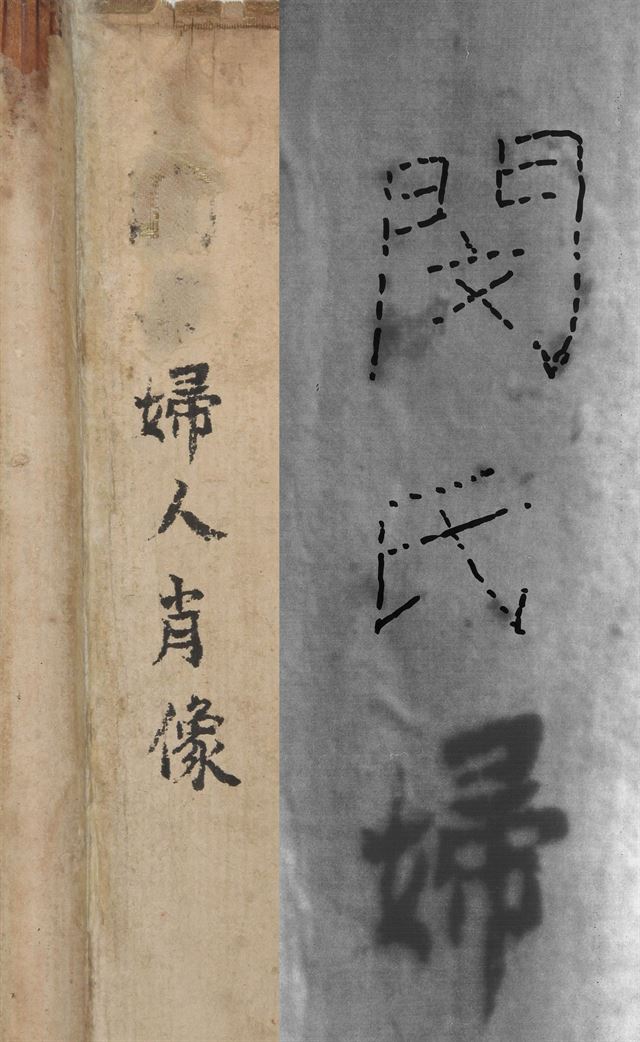 婦人肖像
閔氏婦